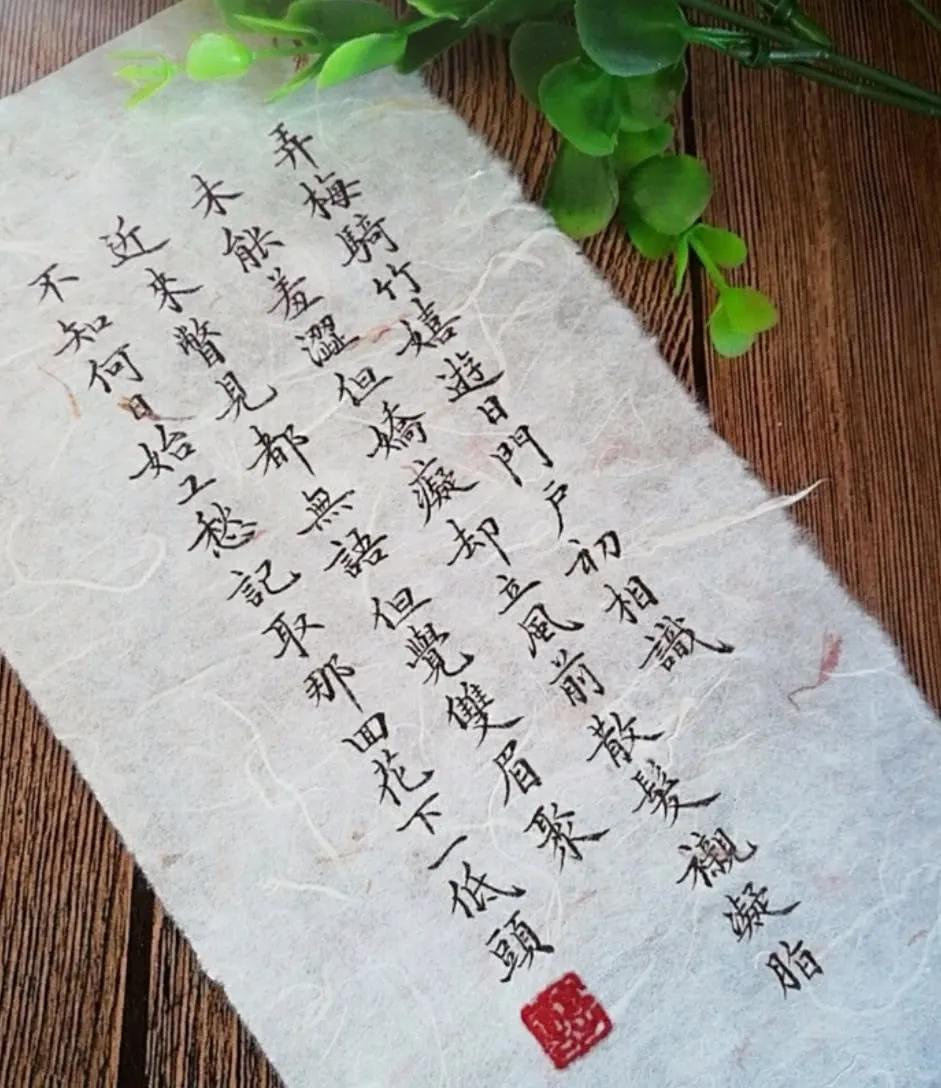 弄梅騎竹嬉遊日門戶初相識
未能羞澀但嬌癡却立風前散髮襯凝脂
近來瞥見都無語但覺雙眉聚
不知何日始工愁記取那回花下一低頭